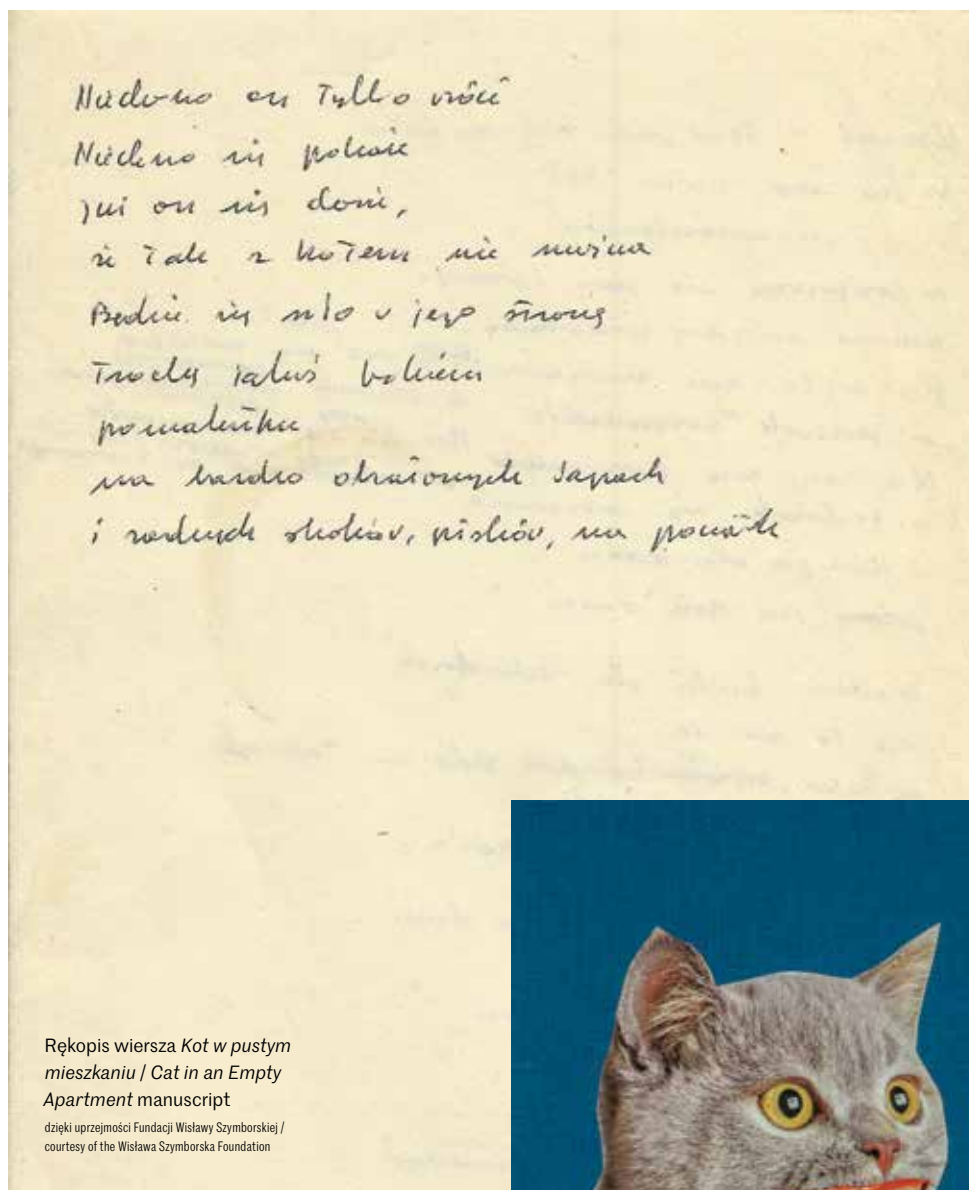 Niechno on tylko wróci
Niechno się pokaże
już on się dowie,
że tak z kotem nie można
Będzie się szło w jego stronę
Trochę jakoś bokiem
pomalutku
na bardzo obrażonych łapach
i żadnych skoków, pisków, na początek
Rękopis wiersza Kot w pustym
mieszkaniu / Cat in an Empty
Apartment manuscript
dzięki uprzejmości Fundacji Wisławy Szymborskiej /
courtesy of the Wisława Szymborska Foundation